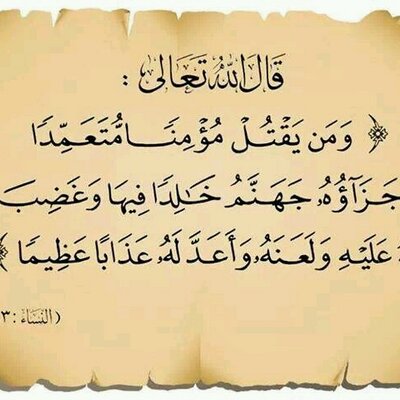 قَالَ اللهُ تَعَالَى :
﴿ وَمَن يَقْتُلْ مُؤْمِنًا مُّتَعَمِّدًا
جَزَآؤُهُۥ جَهَنَّمُ خَٰلِدًا فِيهَا وَغَضِبَ
عَلَيْهِ وَلَعَنَهُۥ وَأَعَدَّ لَهُۥ عَذَابًا عَظِيمًا ﴾
(النِّسَاء : ٣